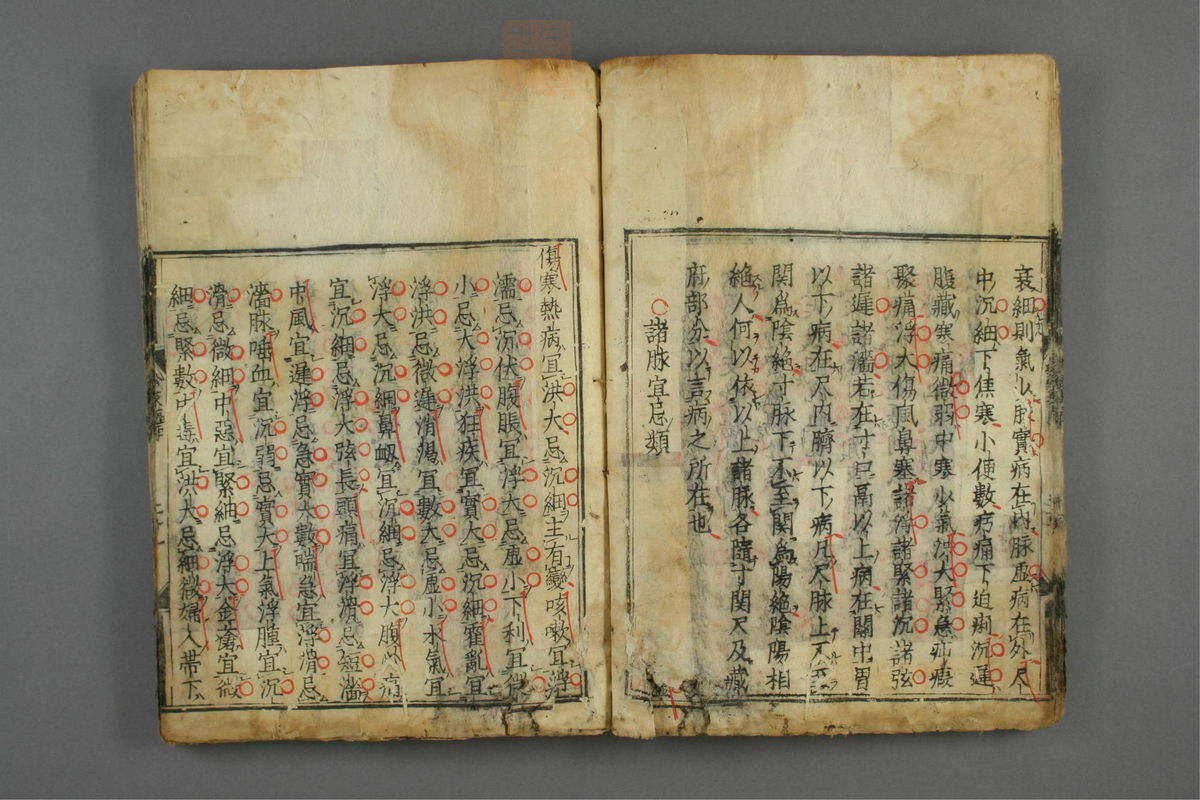 衰細則氣少脉實病在内脉虛病在外尺
中沉細下焦寒小便數疞痛下迫痢沉遲
腹藏寒痛微弱中寒少氣洪大緊急疝瘕
聚痛浮大傷風鼻寒諸浮諸緊諸沉諸弦
諸遲諸濇若在寸口膈以上病在關中胃
以下病在尺内臍以下病凡尺脉上不至
関爲陰絶寸脉下不至関爲陽絶陰陽相
絶人何以依以上諸脉各隨寸関尺及藏
府部分以言病之所在也
○諸脉宜忌類
傷寒熱病宜洪大忌沉細主有變咳嗽宜浮
濡忌沉伏腹脹宜浮大忌虛小下利宜微
小忌大浮洪狂疾宜實大忌沉細霍亂宜
浮洪忌微遲消渴宜數大忌虛小水氣宜
浮大忌沉細鼻衂宜沉細忌浮大腹心痛
宜沉細忌浮大弦長頭痛宜浮滑忌短濇
中風宜遲浮忌急實大數喘急宜浮滑忌
濇脉唾血宜沉弱忌實大上氣浮腫宜沉
滑忌微細中惡宜緊細忌浮大金瘡宜微
細忌緊數中毒宜洪大忌細微婦人帶下